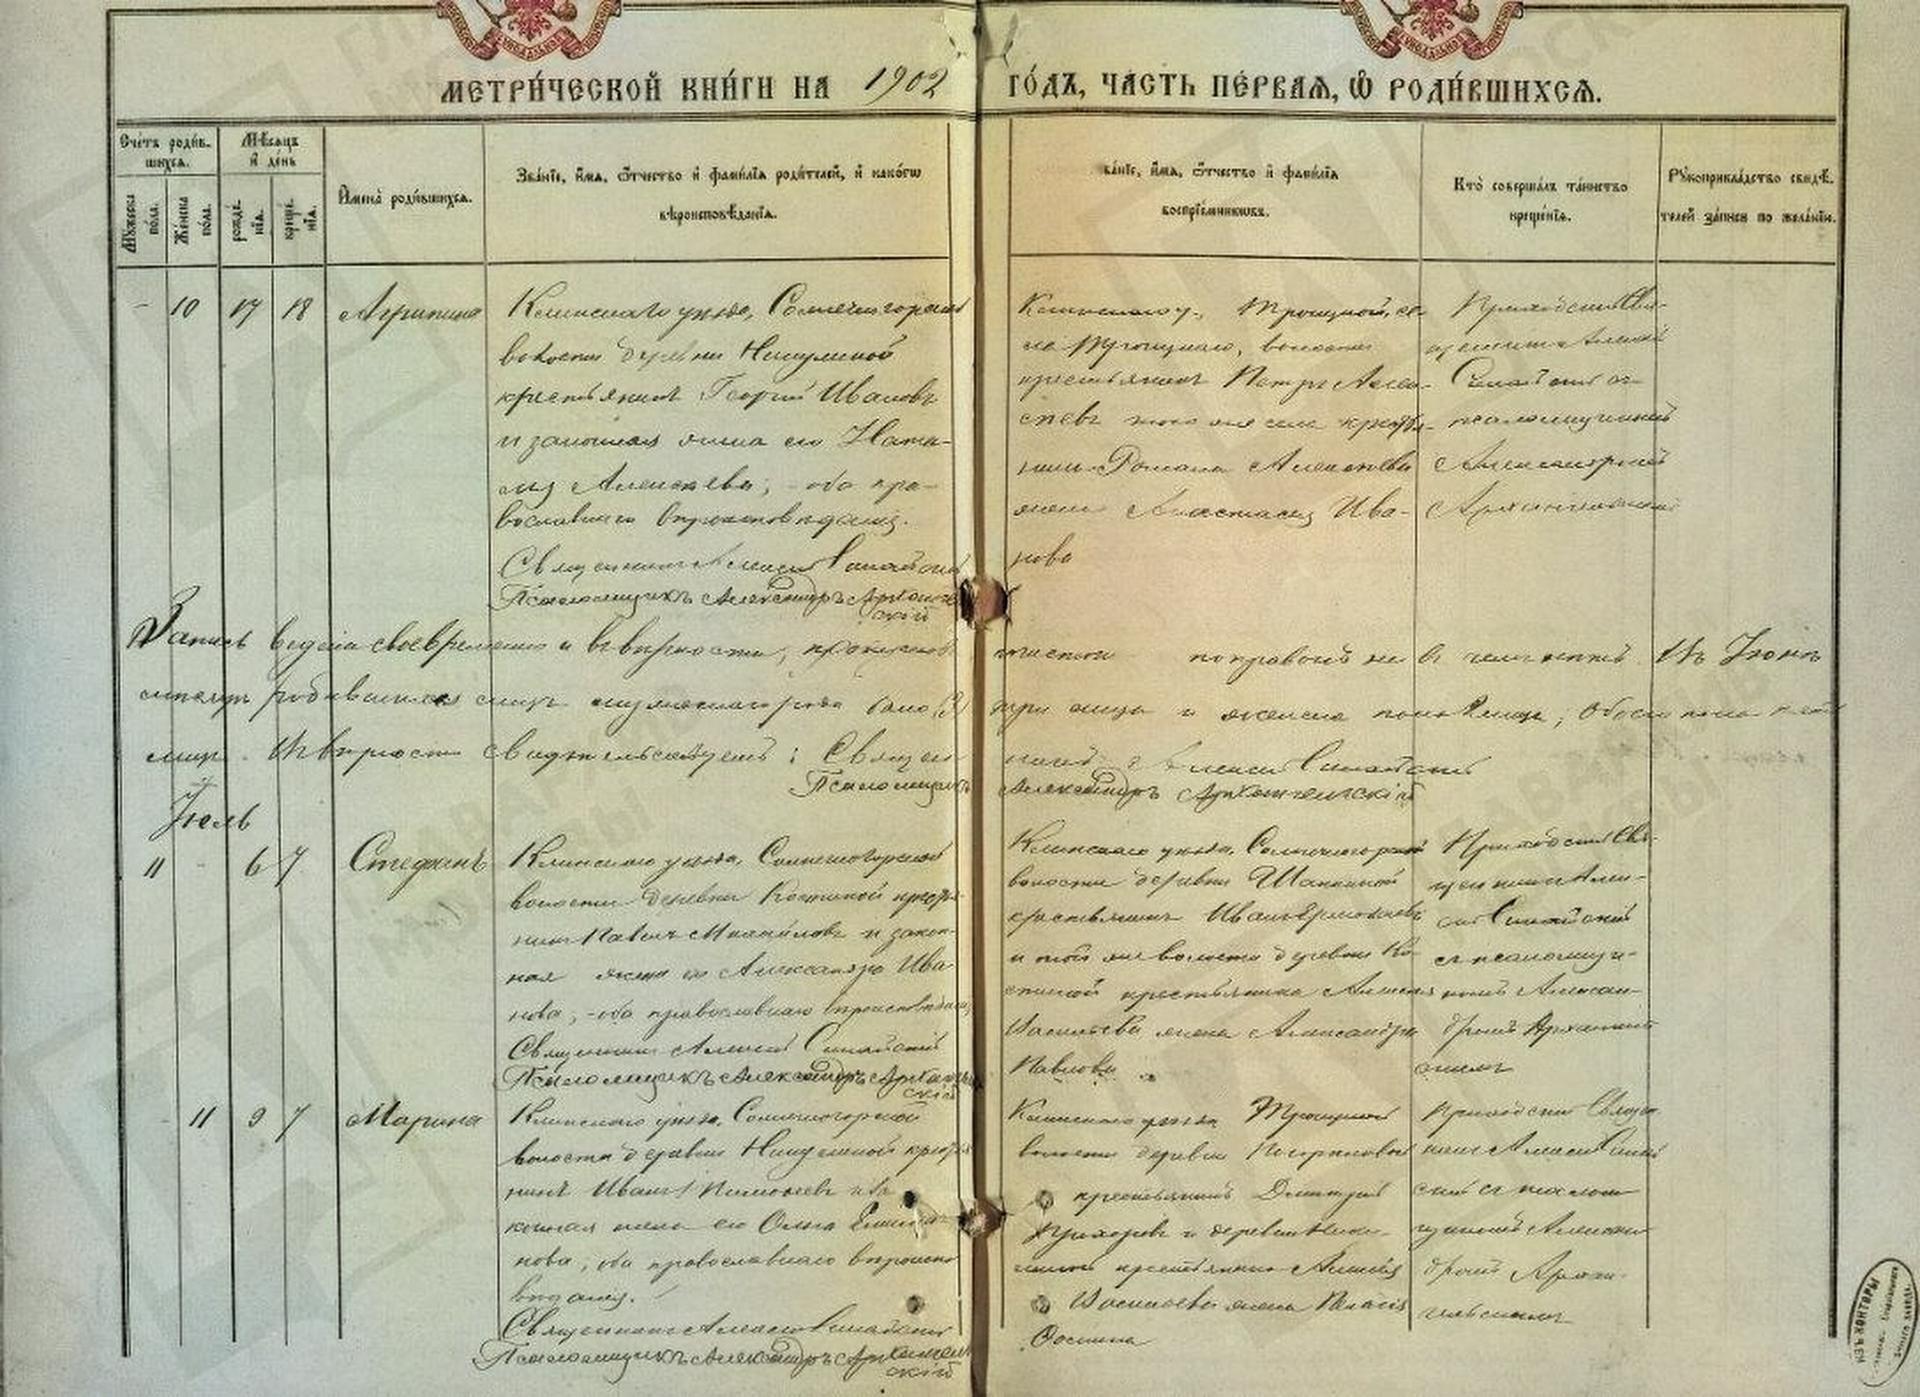 МЕТРИ́ЧЕСКОЙ КНИ́ГИ НА 1902 ГО́ДЪ, ЧА́СТЬ ПЕ́РВАЯ, Ѽ РОДИ́ВШИХСЯ.
Сче́тъ роди́в-
шихся.
Му́жеска
по́ла.
Же́нска
по́ла.
Мѣ́сяцъ
и де́нь
рожде́-
нїя.
креще́-
нїя.
Имена̀ роди́вшихся.
Зва́нїе, и́мя, ѻ́тчество и фами́лїя роди́телей, и како́гѡ
вѣроисповѣ́данїя.
ва́нїе, и́мя, ѻ́тчество и фами́лїя
воспрїе́мниковъ.
Кто̀ соверша́лъ та́инство
креще́нїя.
Рꙋкоприкла́дство свидѣ́-
телей за́писи по жела́нїю.
- 10 17 18 Агрипина
Клинскаго уѣзда, Солнечногорской
волости деревни
крестьянинъ Георгій Ивановъ
и законная жена его Ната-
лія Алексѣева, - оба пра-
вославнаго вѣроисповѣданія.
Священникъ Алексій Синайскій
Псаломщикъ Александръ Архангель-
скій
Клинскаго у., Троицкой, се-
ла Троицкаго, волости
крестьянинъ Петръ Алек-
сѣевъ того же села крестья-
нина Романа Алексѣева
жена Анастасія Ива-
нова
Приходскій Свя-
щенникъ Алексій
Синайскій съ
псаломщикомъ
Александромъ
Архангельскимъ
Запись ведена своевременно и въ вѣрности, поправокъ ни въ чемъ нѣтъ. Въ Іюнѣ
мѣсяцѣ родившихся лицъ мужескаго рода было (3) три лица и женска пола лица; обоего пола пять
лицъ. Въ вѣрности свидѣтельствуемъ: Священникъ Алексій Синайскій
Псаломщикъ Александръ Архангельскій
Іюль
11 - 6 7 Стефанъ
Клинскаго уѣзда, Солнечногорской
волости деревни Костиной крестья-
нинъ Павелъ Михайловъ и закон-
ная жена его Александра Ива-
нова, - оба православнаго вѣроисповѣданія
Священникъ Алексій Синайскій
Псаломщикъ Александръ Архангель-
скій
Клинскаго уѣзда, Солнечногорской
волости деревни
крестьянинъ Иванъ Ермолаевъ
и той же волости деревни Ко-
стиной крестьянина Алексѣя
Васильева жена Александра
Павлова
Приходскій Свя-
щенникъ Алек-
сій Синайскій
съ псаломщи-
комъ Алексан-
дромъ Архангель-
скимъ
- 11 9 7 Марина
Клинскаго уѣзда, Солнечногорской
волости деревни крестья-
нинъ Иванъ и за-
конная жена его Ольга
нова, оба православнаго вѣроиспо-
вѣданія.
Священникъ Алексій Синайскій
Псаломщикъ Александръ Архангель-
скій
Клинскаго уѣзда Троицкой
волости деревни
крестьянинъ Дмитрій
Прохоровъ и деревни
крестьянина Алексѣя
Васильева жена Пелагія
Фомина
Приходскій Священ-
никъ Алексій Синай-
скій съ псалом-
щикомъ Алексан-
дромъ Архан-
гельскимъ
КОНТОРЫ